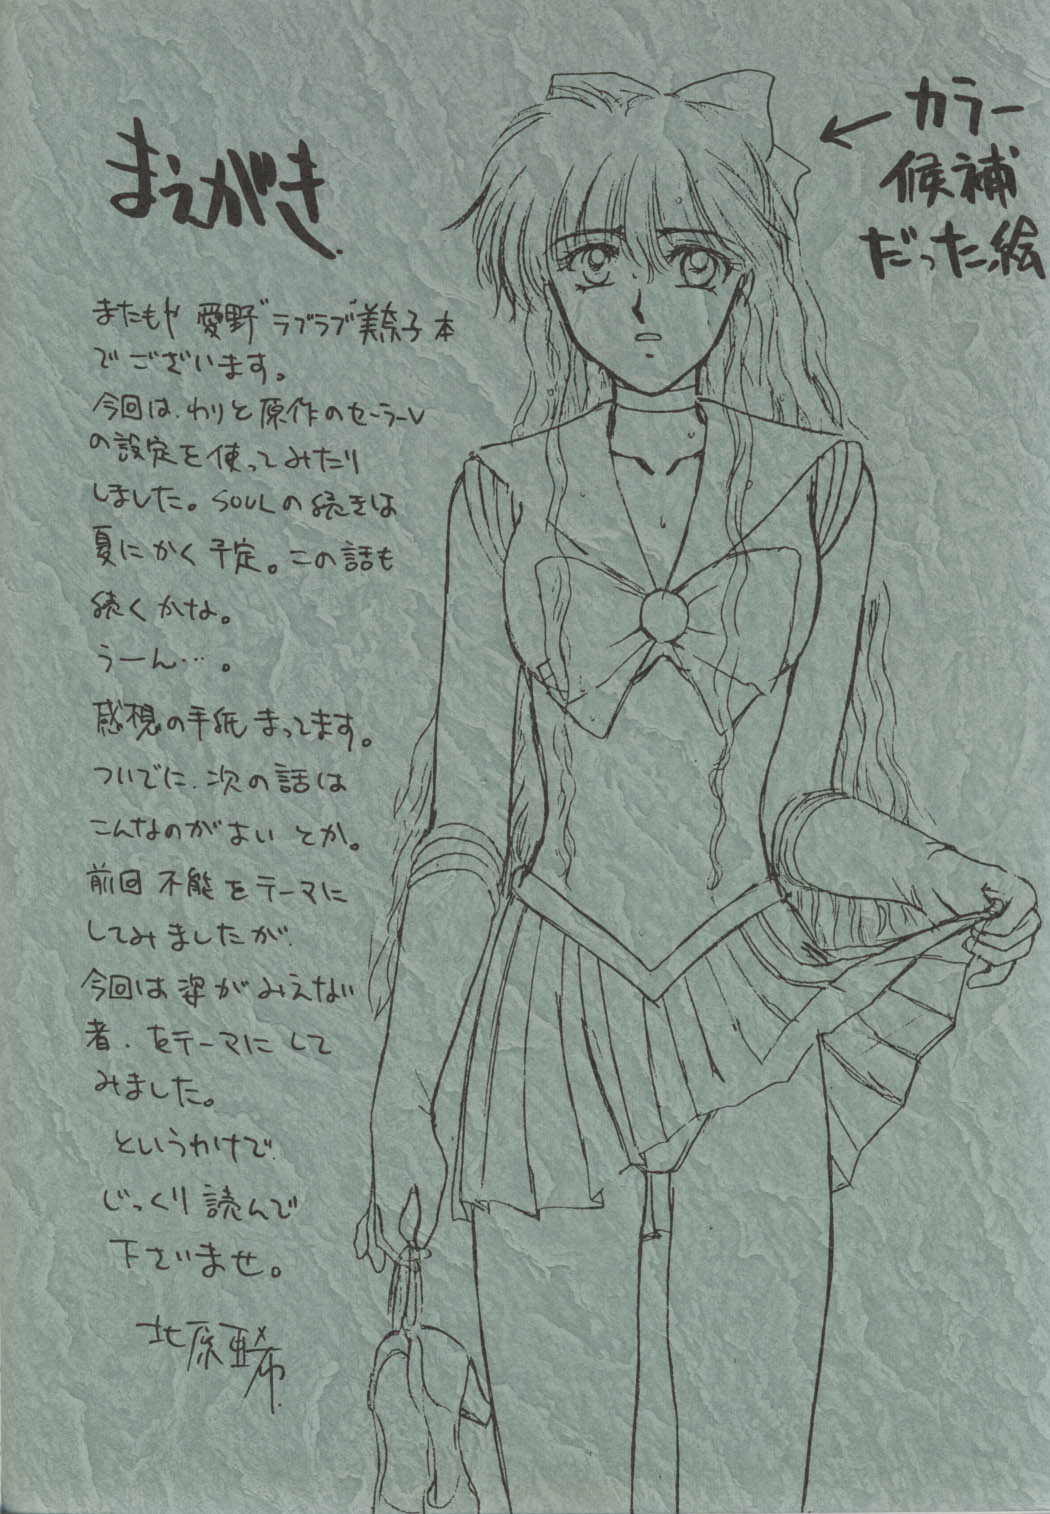 まえがき.
またもや 愛野"ラブラブ"美奈子 本
でございます。
今回は、わりと原作のセーラーV
の設定を使ってみたり
しました。SOULの続きは
夏にかく予定。この話も
続くかな。
うーん…。
感想の手紙まってます。
ついでに、次の話は
こんなのがよい とか。
前回 不能をテーマに
してみましたが、
今回は 姿がみえない
者、をテーマにして
みました。
というわけで、
じっくり読んで
下さいませ。
北原亜希
←カラー
候補
だった絵